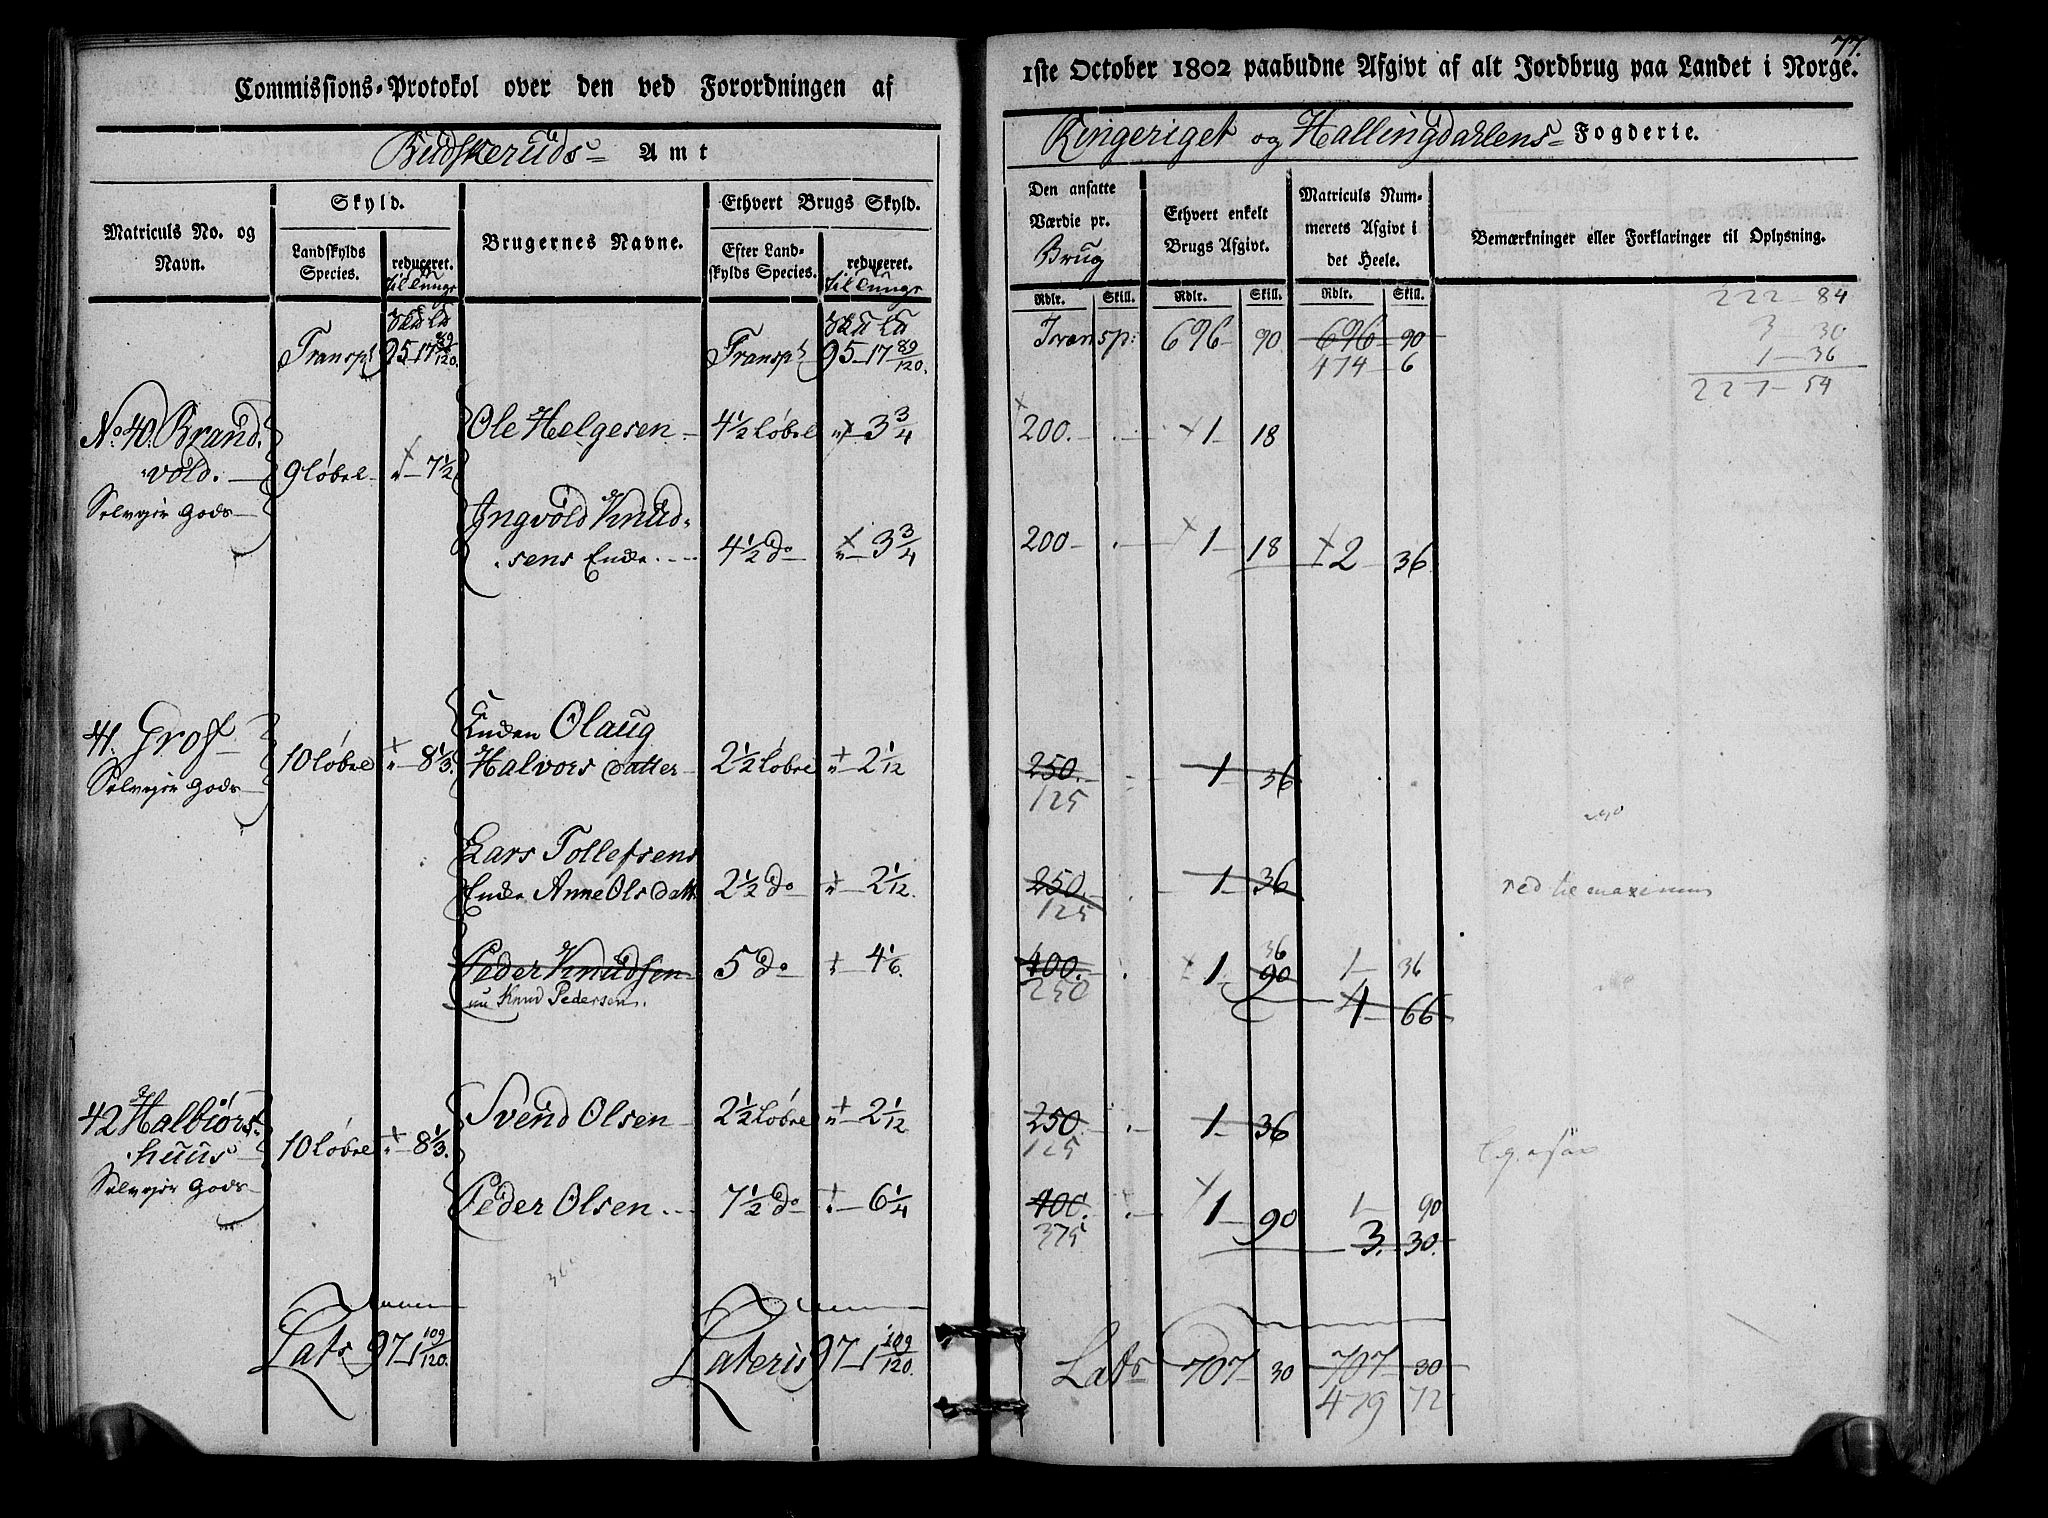 Commissions-Protokol over den ved Forordningen af
Budskeruds Amt
Matriculs No. og Navn.
Skyld.
Landskylds Species.
reduceret. til Tunge
Brugernes Navne.
Ethvert Brugs Skyld.
Efter Landskylds Species.
reduceret. til Tunge
Transpt 95-17 89/120. Transpt 95-17 89/120.
No. 40. Brandvold. Selveier Gods 9 løbel 7 1/2
Ole Helgesen 4 1/2 løbel 3 3/4
Ingvold Knudsens Enke 4 1/2 do 3 3/4
41. Grof Selveier Gods 10 løbel 8 1/3.
Enken Olaug Halvors datter 2 1/2 løbel 2 1/12
Lars Tollefsens Enke Anne Ols datt 2 1/2 do 2 1/12.
Peder Knudsen 5 do 4 1/6.
nu Knud Pedersen.
42 Halbiørshuus Selveier Gods 10 løbel 8 1/3.
Svend Olsen 2 1/2 løbel 2 1/12
Peder Olsen 7 1/2 do 6 1/4
Lats 97-1 109/120. Lateris 97-1 109/120.
77.
1ste October 1802 paabudne Afgivt af alt Jordbrug paa Landet i Norge.
Ringeriget og Hallingdahlens Fogderie.
Den ansatte Værdie pr. Brug
Ethvert enkelt Brugs Afgivt.
Matriculs Nummerets Afgivt i det Heele.
Bemærkninger eller Forklaringer til Oplysning.
Rdlr. Skill. Rdlr. Skill. Rdlr. Skill.
222-84
3-30
1-36
227-54
Transp: 696 90 696 90
474 6
200. 1 18
200 1 18 2 36
250. 1 36
125
250. 1 36 red til maximum
125
36
400. 1 90 1 36
250 4 66
250. 1 36
125
400. 1 90 1 90
375 3. 30.
Lats 707 30 707 30
479 72